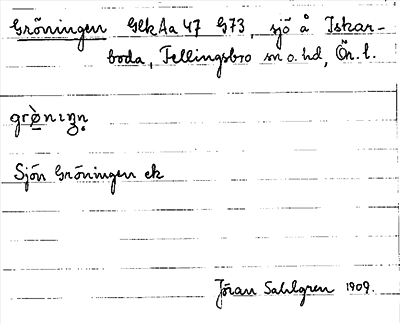 Gröningen GlkAa 47 G73, sjö å Iskar-
boda, Fellingsbro sn o. hd, Ör. l.
grø̀nɪŋn̥
Sjön Gröningen ek
Jöran Sahlgren 1909.